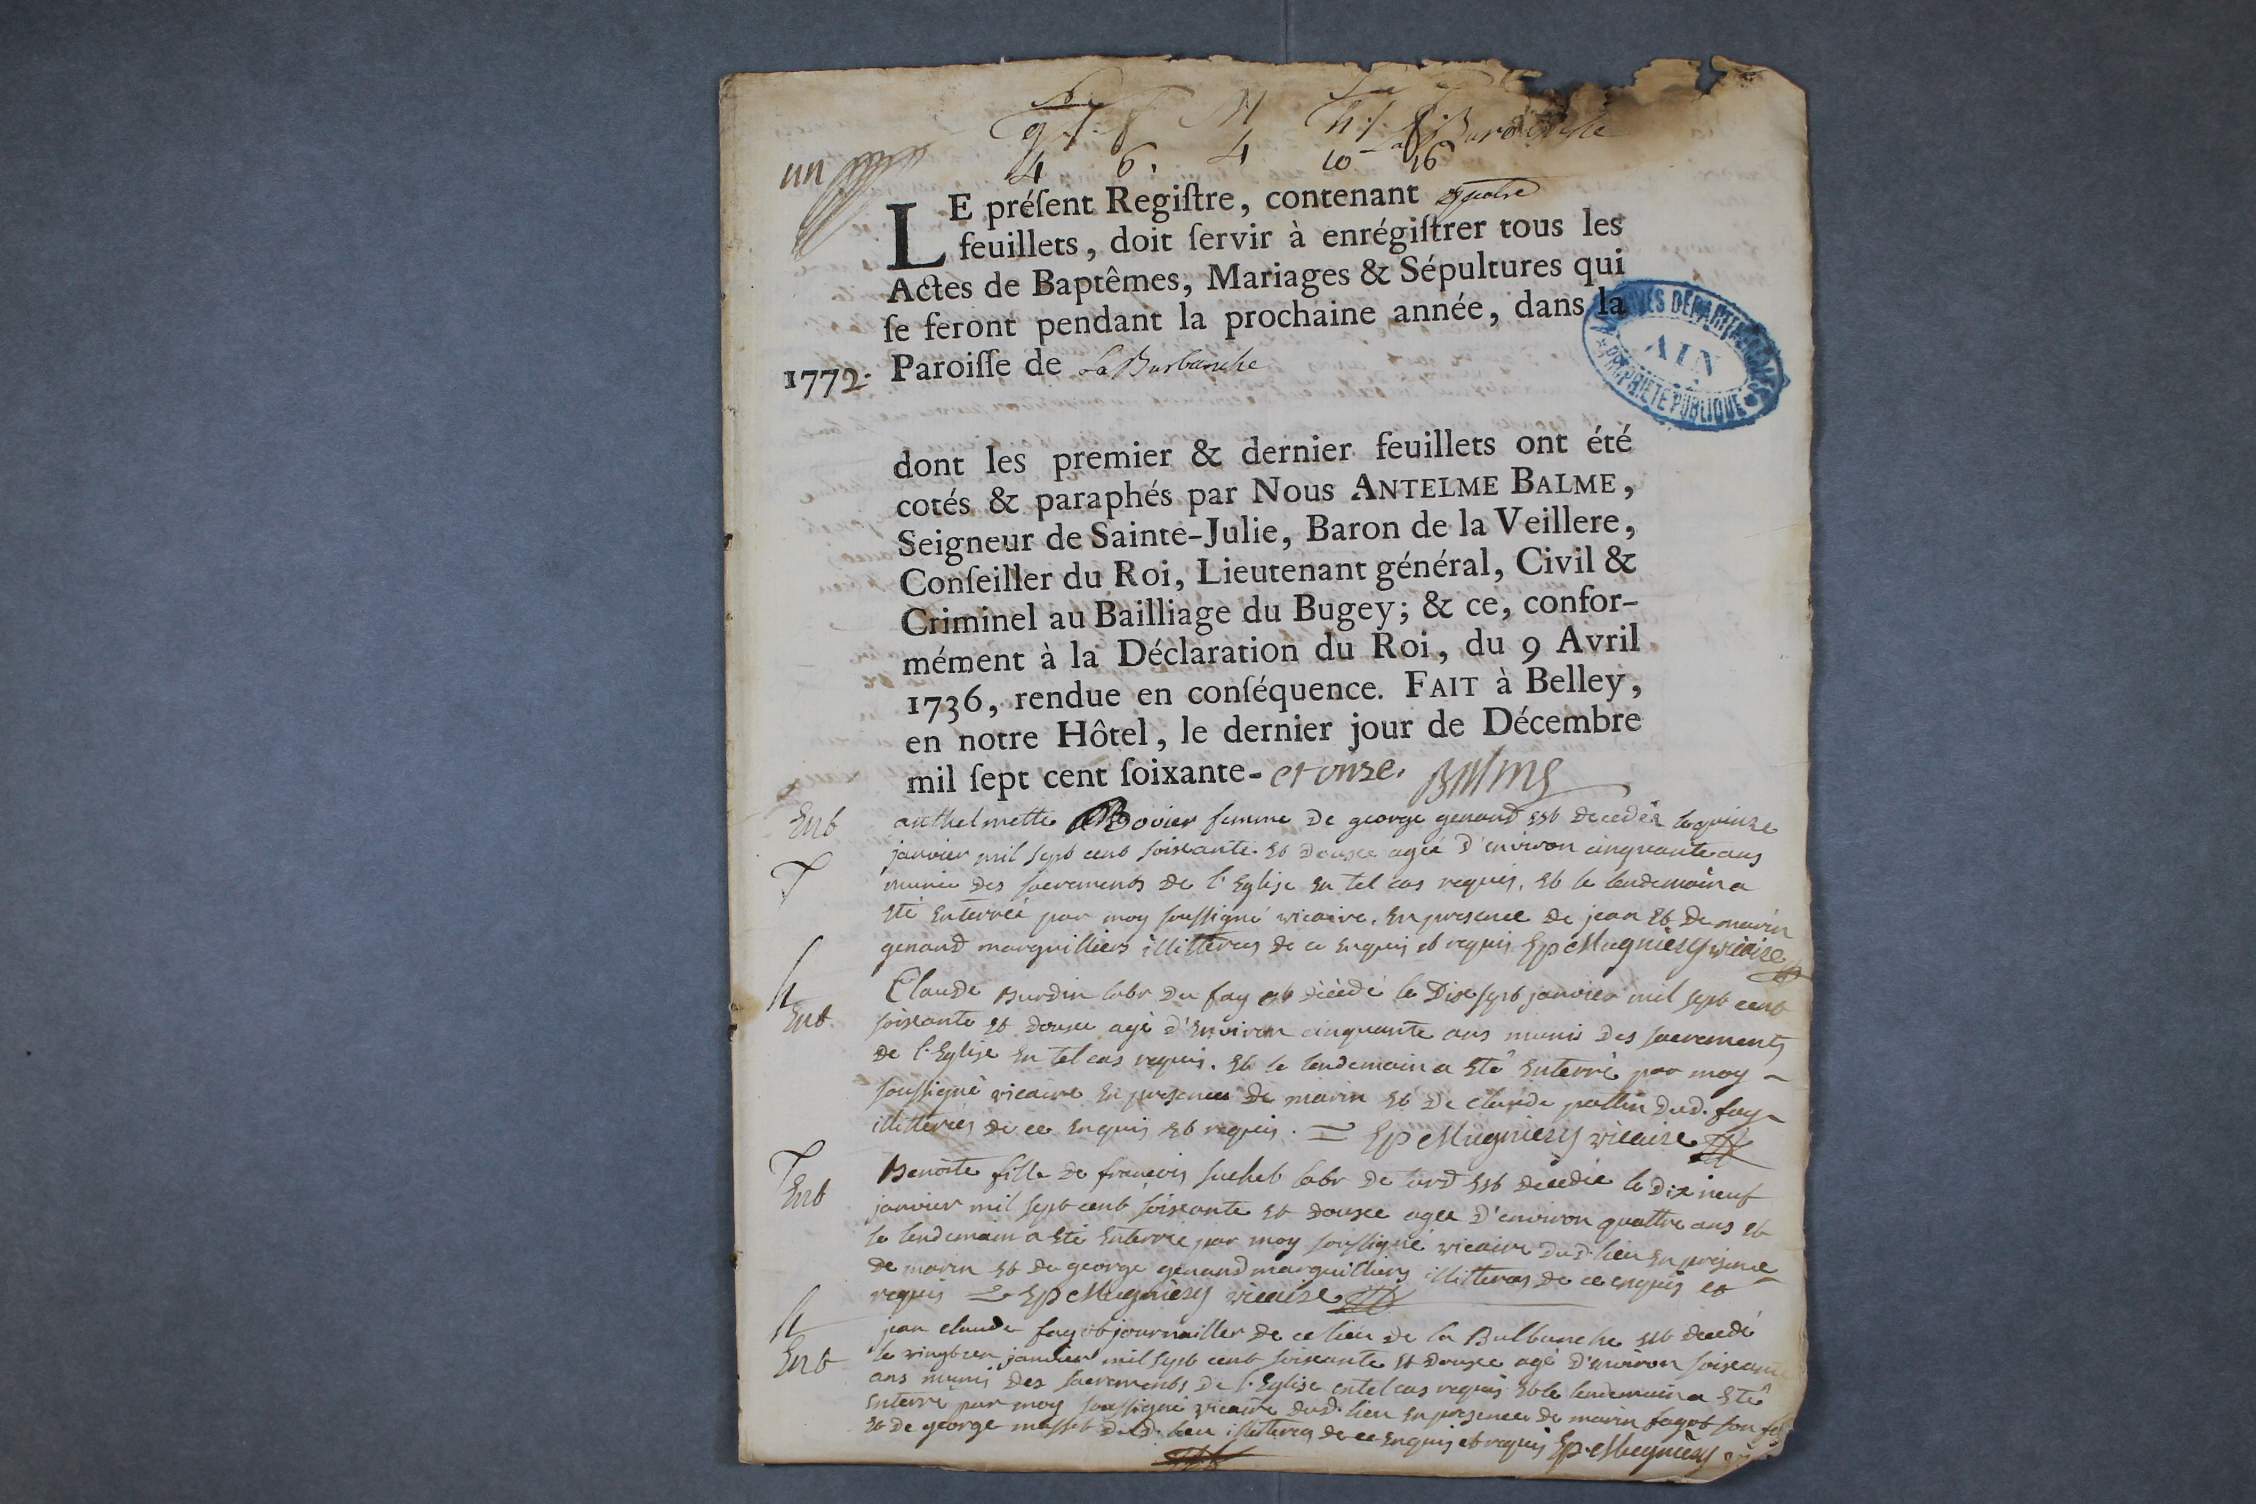 g.f. f M h.f. f.
La Burbanche
un
4 6. 4 10 16
LE préſent Regiſtre, contenant quatre
feuillets, doit ſervir à enrégiſtrer tous les
Actes de Baptêmes, Mariages & Sépultures qui
ſe feront pendant la prochaine année, dans la
1772. Paroiſſe de La Burbanche
ARCHIVES DEPARTEMENTALES
AIN
PROPRIETE PUBLIQUE
dont les premier & dernier feuillets ont été
cotés & paraphés par Nous ANTELME BALME,
Seigneur de Sainte-Julie, Baron de la Veillere,
Conſeiller du Roi, Lieutenant général, Civil &
Criminel au Bailliage du Bugey; & ce, confor-
mément à la Déclaration du Roi, du 9 Avril
1736, rendue en conſéquence. FAIT à Belley,
en notre Hôtel, le dernier jour de Décembre
mil ſept cent ſoixante- et onze. Balme
Ent anthelmette Bovier femme de george genand est decedée le quinze
janvier mil sept cent soixante et douze agée d'environ cinquante ans
munie des sacrements de l'Eglise en tel cas requis. et le lendemain a
eté enterrée par moy soussigné vicaire. en presence de jean et de marin
genand marguilliers illitteres de ce enquis et requis Ep Mugniery vicaire
Claude Burdin labr du fay est décédé le dix sept janvier mil sept cent
Ent. soixante et douze agé d'environ cinquante ans munis des sacrements
de l'Eglise en tel cas requis. et le lendemain a eté enterré par moy
soussigné vicaire en presence de marin et de claude pallin dud. fay
illitteres de ce enquis et requis. Ep Mugniery vicaire
Benoite fille de francois suchet labr de est décédée le dix neuf
Ent janvier mil sept cent soixante et douze agée d'environ quattre ans et
le lendemain a eté enterrée par moy soussigné vicaire dud. lieu en présence
de marin et de george genand marguilliers illitteres de ce enquis et
requis Ep Mugniery vicaire
claude fagot journailler de ce lieu de la Bulbanche est decedé
Ent le vingt un janvier mil sept cent soixante et douze agé d'environ soixante
ans munis des sacrements de l'Eglise en tel cas requis et le lendemain a eté
enterré par moy soussigné vicaire dud. lieu en presence de marin fagot son fils
et de george dud. lieu illitteres de ce enquis et requis Ep Mugniery